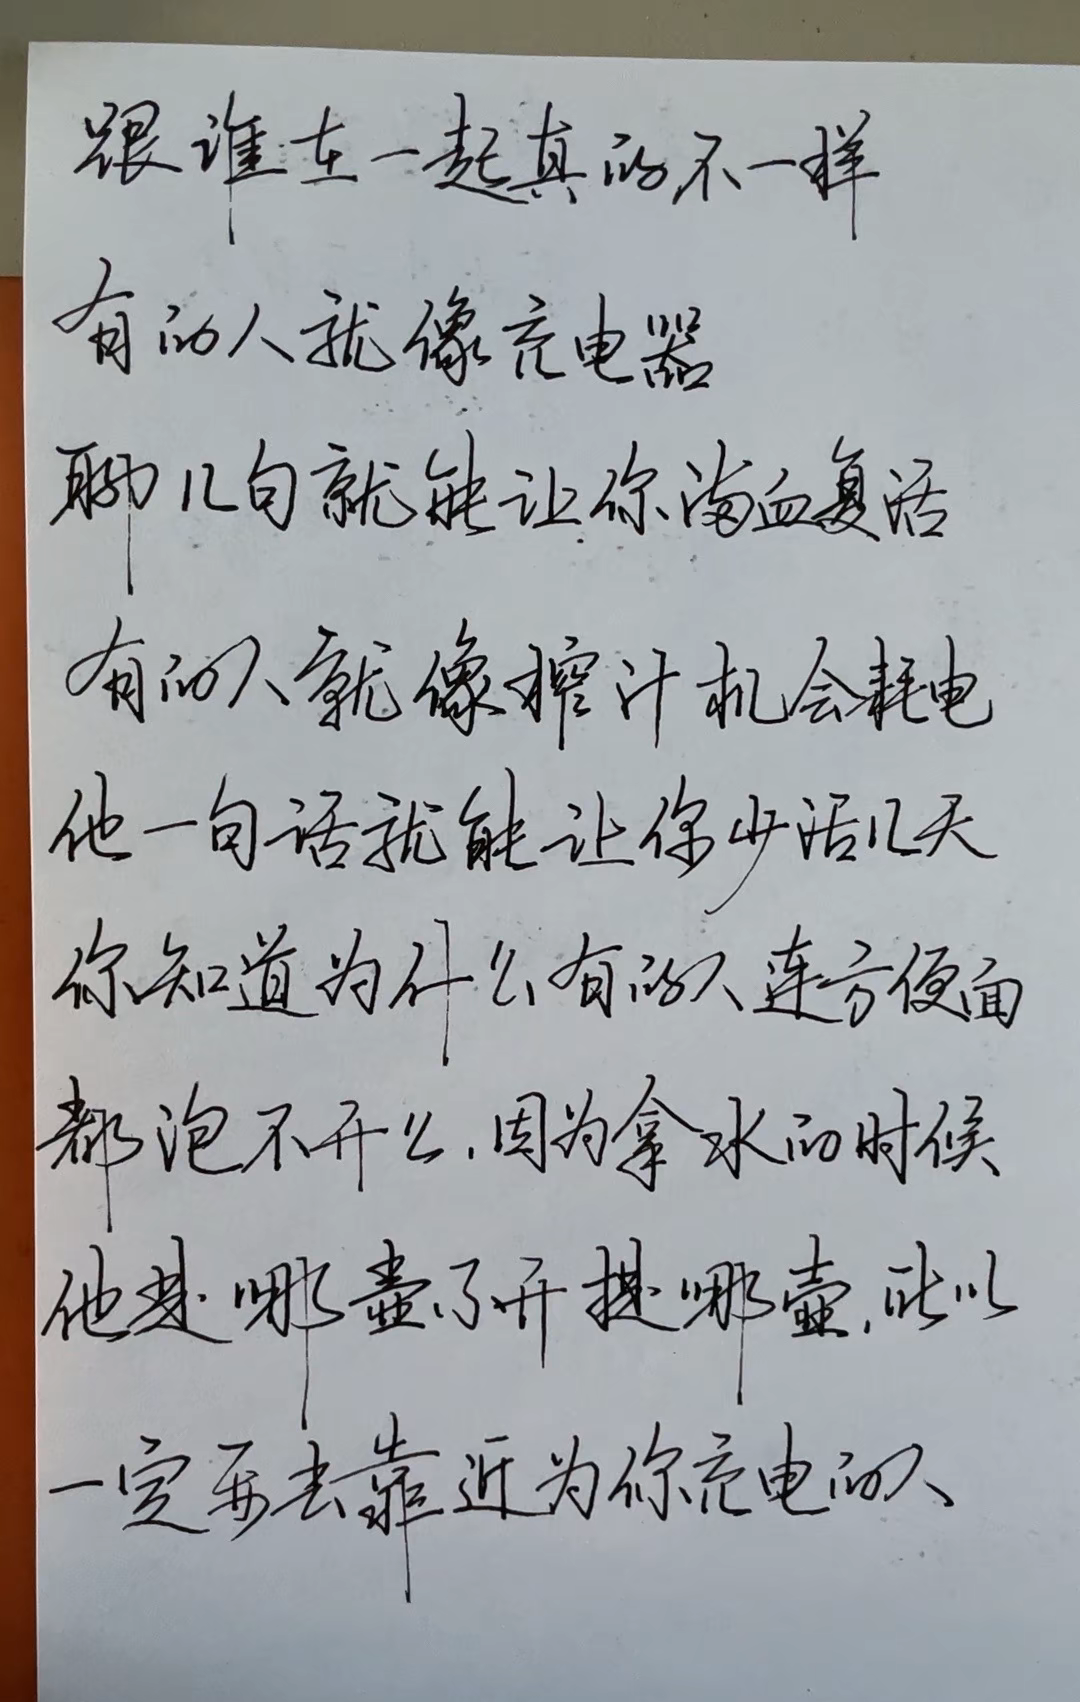 跟谁在一起真的不一样
有的人就像充电器
聊几句就能让你满血复活
有的人就像榨汁机会耗电
他一句话就能让你少活几天
你知道为什么有的人连方便面
都泡不开么,因为拿水的时候
他是哪壶不开提哪壶,所以
一定要去靠近为你充电的人